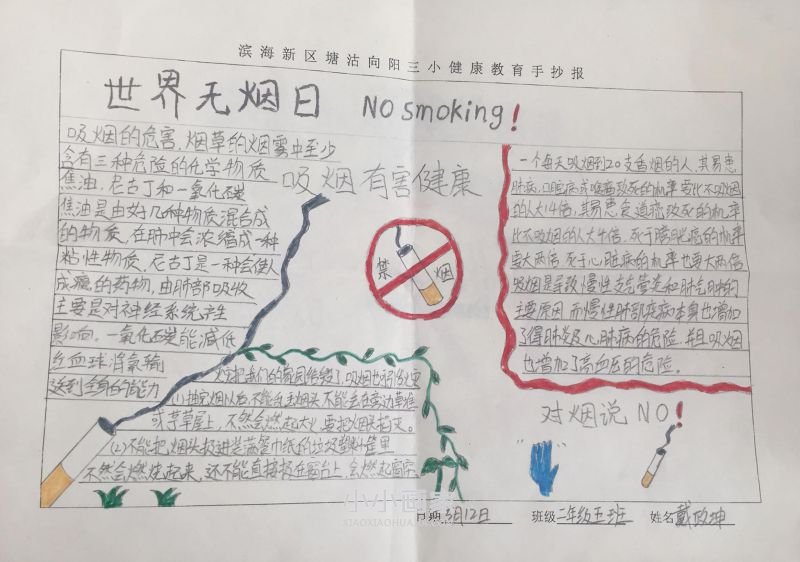 滨海新区塘沽向阳三小健康教育手抄报
世界无烟日 NO smoking!
吸烟的危害,烟草的烟雾中至少
含有三种危险的化学物质
焦油,尼古丁和一氧化碳
焦油是由好几种物质混合成
的物质,在肺中会浓缩成一种
粘性物质,尼古丁是一种会使人
成瘾的药物,由肺部吸收
主要是对神经系统产生
影响,一氧化碳能减低
红血球将氧输
送到全身的能力
吸烟有害健康
禁烟
一个每天吸烟到20支香烟的人,其易患
肺病,口腔病或咽癌致死的机率要比不吸烟
的人大14倍,其易患食道癌致死的机率
比不吸烟的人大4倍,死于膀胱癌的机率
要大两倍,死于心脏病的机率也要大两倍
吸烟是导致慢性支气管炎和肺气肿的
主要原因,而慢性肺部疾病本身也增加
了得肺炎及心脏病的危险,并且吸烟
也增加了高血压的危险。
(1)抽完烟以后不能乱丢烟头,不能会在旁边草堆
或芋草屋上,不然会燃起大火,要把烟头掐灭。
(2)不能把烟头投进装满餐巾纸的垃圾塑料管里
不然会燃烧起来,还不能直接投在窗台上,会燃起窗帘
对烟说 NO!
小小画家
XIAOXIAOHUA
日期 5月12日 班级 二年级五班 姓名